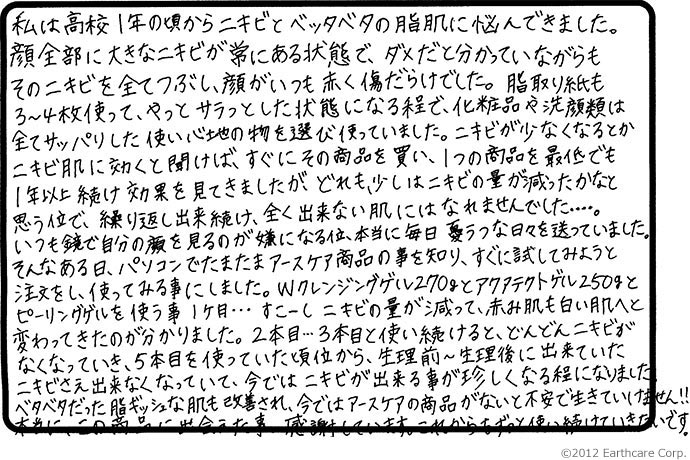 私は高校1年の頃からニキビとベッタベタの脂肌に悩んできました。
顔全部に大きなニキビが常にある状態で、ダメだと分かっていながらも
そのニキビを全てつぶし、顔がいつも赤く傷だらけでした。脂取り紙も
3～4枚使って、やっとサラっとした状態になる程で、化粧品や洗顔類は
全てサッパリした使い心地の物を選び使っていました。ニキビが少なくなるとか
ニキビ肌に効くと聞けば、すぐにその商品を買い、1つの商品を最低でも
1年以上続け効果を見てきましたが、どれも、少しはニキビの量が減ったかなと
思う位で、繰り返し出来続け、全く出来ない肌にはなれませんでした……。
いつも鏡で自分の顔を見るのが嫌になる位、本当に毎日憂うつな日々を送っていました。
そんなある日、パソコンでたまたまアースケア商品の事を知り、すぐに試してみようと
注文をし、使ってみる事にしました。Wクレンジングゲル270gとアクアテクトゲル250gと
ピーリングゲルを使う事1ヶ目…すこーしニキビの量が減って、赤み肌も白い肌へと
変わってきたのが分かりました。2本目…3本目と使い続けると、どんどんニキビが
なくなっていき、5本目を使っていた頃位から、生理前～生理後に出来ていた
ニキビさえ出来なくなっていて、今ではニキビが出来る事が珍しくなる程になりました。
ベタベタだった脂ギッシュな肌も改善され、今ではアースケアの商品がないと不安で生きていけません!!
本当に、この商品に出会えた事、感謝しています。これからもずっと使い続けていきたいです。
©2012 Earthcare Corp.